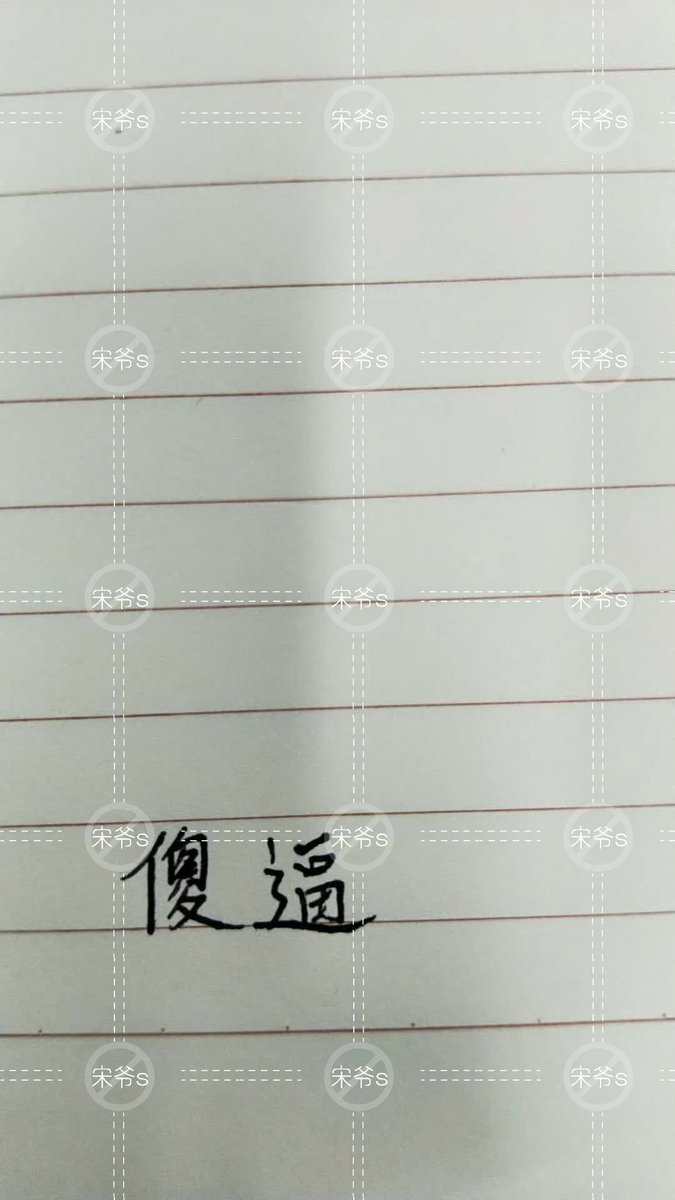 宋爷s 宋爷s 宋爷s
宋爷s 宋爷s 宋爷s
宋爷s 宋爷s 宋爷s
宋爷s 宋爷s 宋爷s
傻逼
宋爷s 宋爷s 宋爷s